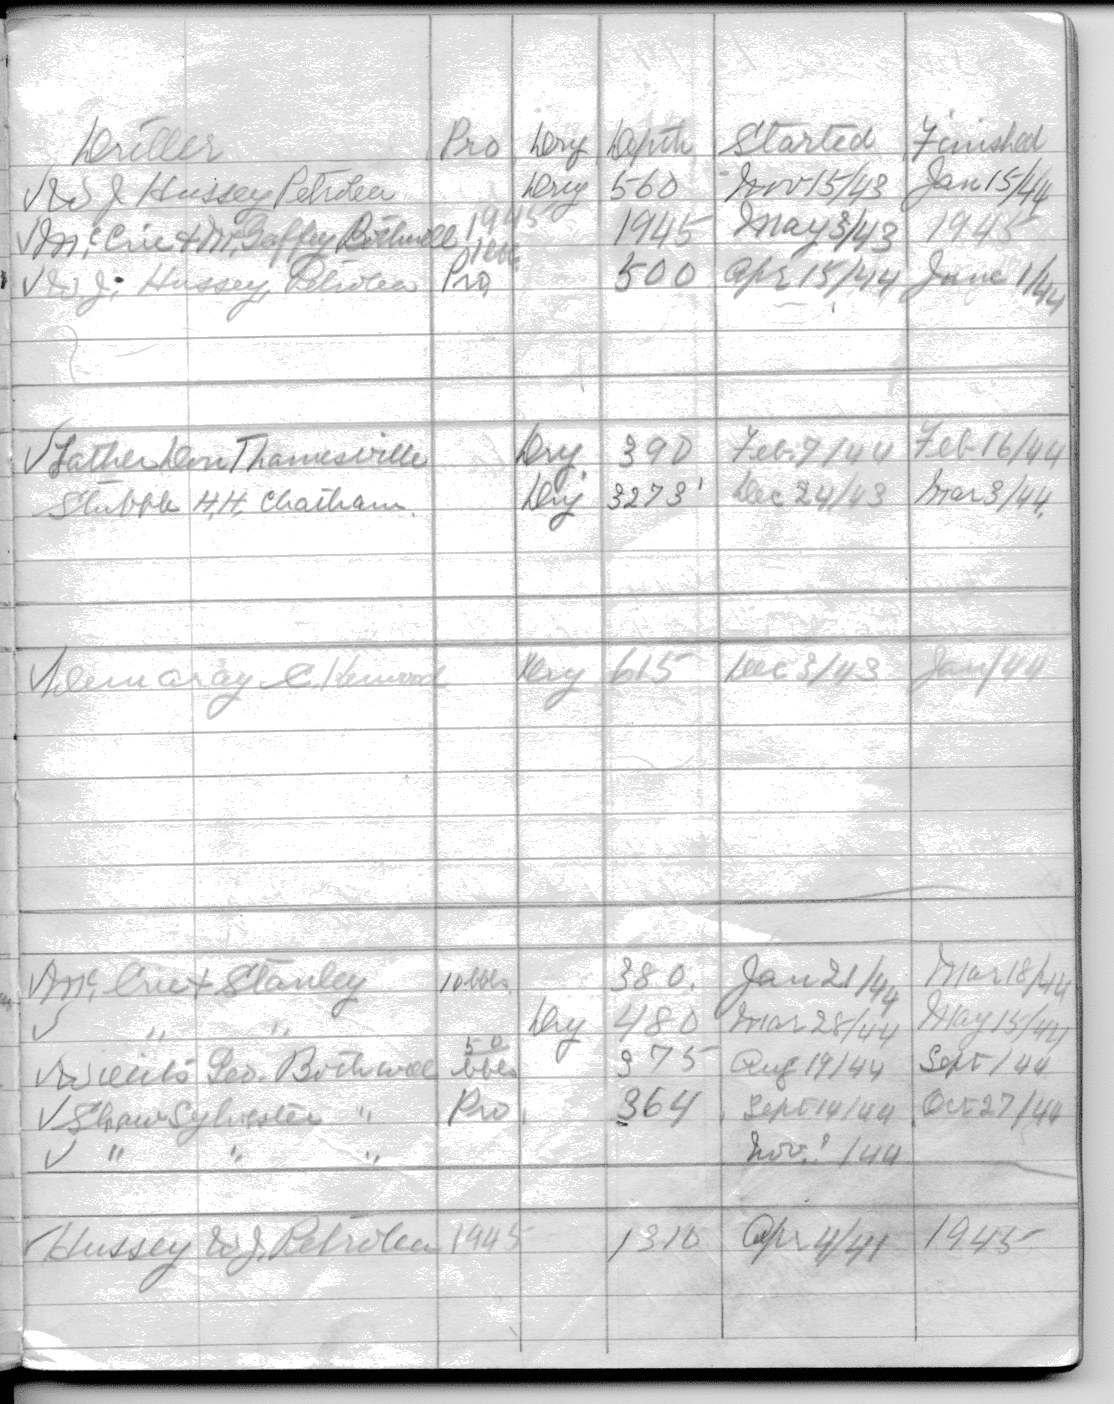 Driller Pro Dry Depth Started Finished
✓ W J Hussey Petrolea Dry 560 Nov 15/43 Jan 15/44
1945
✓ Mc Crie & Mc Gaffey Bothwell 1945 May 3/43 1945
✓ W J. Hussey, Petrolea Pro, 500 Apr 15/44 June 1/44
✓ Father Don Thamesville Dry. 390 Feb 7/44 Feb 16/44
Stubble H.H. Chatham. Dry 3273' Dec 24/43 Mar 3/44
✓ Demaray C. Dry 615 Dec 3/43 Jan/44
✓ Mc, Crie & Stanley 10 bbls. 380. Jan 21/44 Mar 18/44
✓ " " Dry 480 Mar 28/44 May 15/44
50
✓ Geo. Bothwell bbls 375 Aug 19/44 Sept 1/44
✓ Shaw Sylvester " Pro, 364 Sept 14/44 Oct 27/44
✓ " " " Nov. 1/44
✓ Hussey W J. Petrolea 1945 1310 Apr 4/41 1945